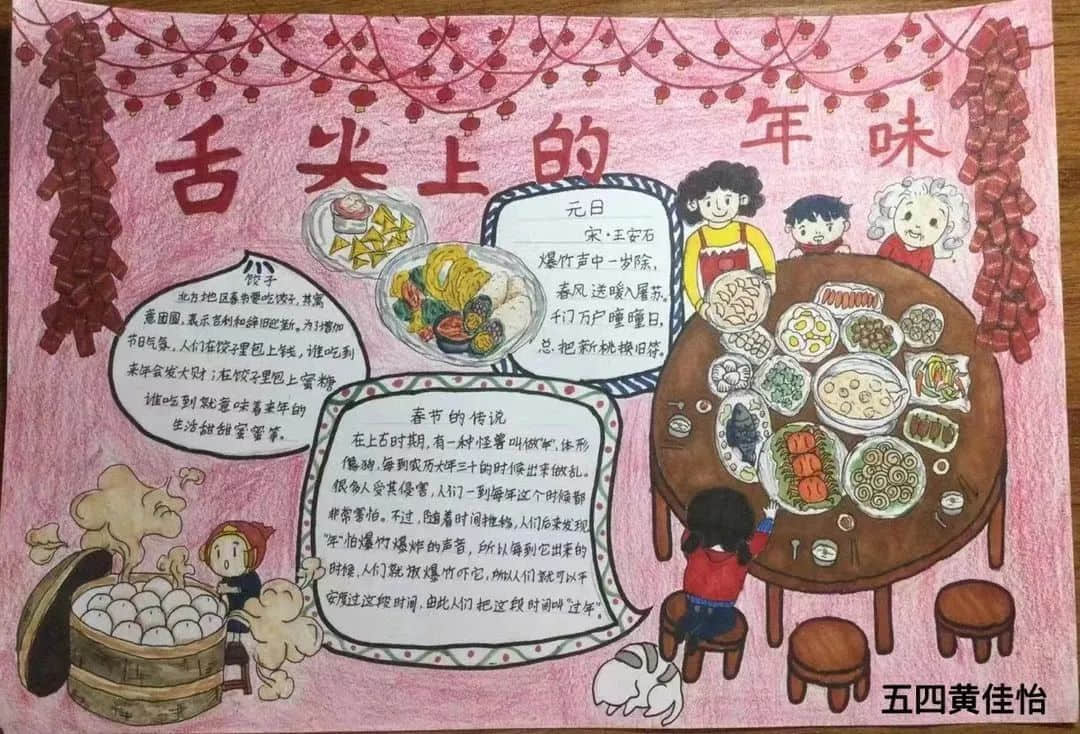 舌尖上的年味
饺子
北方地区春节要吃饺子,其寓
意团圆,表示吉利和辞旧迎新。为了增加
节日气氛,人们在饺子里包上钱,谁吃到
来年会发大财;在饺子里包上蜜糖
谁吃到就意味着来年的
生活甜甜蜜蜜等。
元日
宋·王安石
爆竹声中一岁除,
春风送暖入屠苏。
千门万户曈曈日,
总把新桃换旧符。
春节的传说
在上古时期,有一种怪兽叫做“年”,体形
像狗,每到农历大年三十的时候出来做乱。
很多人受其侵害,人们一到每年这个时候都
非常害怕。不过,随着时间推移,人们后来发现
“年”怕爆竹爆炸的声音,所以每到它出来的
时候,人们就放爆竹吓它,所以人们就可以平
安度过这段时间,由此人们把这段时间叫“过年”。
五四黄佳怡